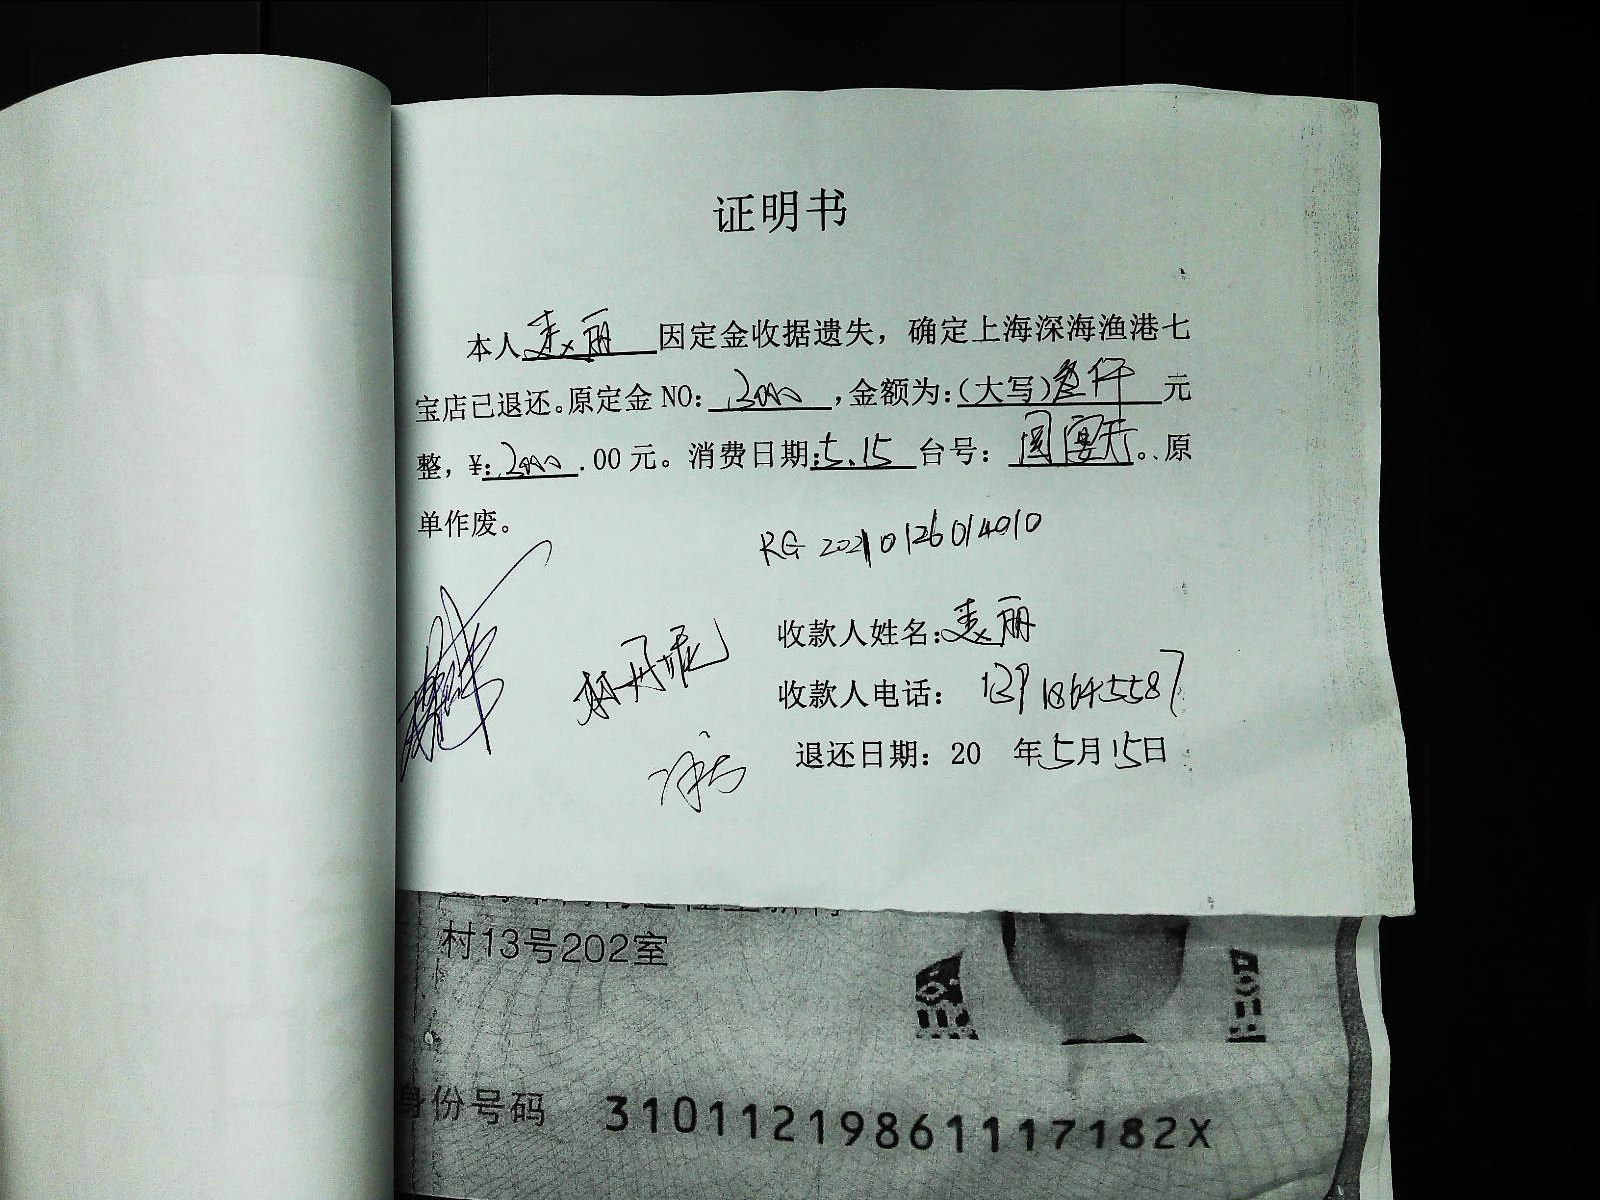 证明书
本人麦丽 因定金收据遗失，确定上海深海渔港七
宝店已退还。原定金 NO：3000，金额为：（大写）叁仟 元
整，¥：3000.00 元。消费日期：5.15 台号：国宴厅。、原
单作废。
RG 20210126014010
收款人姓名：麦丽
收款人电话：13918645587
退还日期：20 年5月15日
村13号202室
身份号码 31011219861117182X